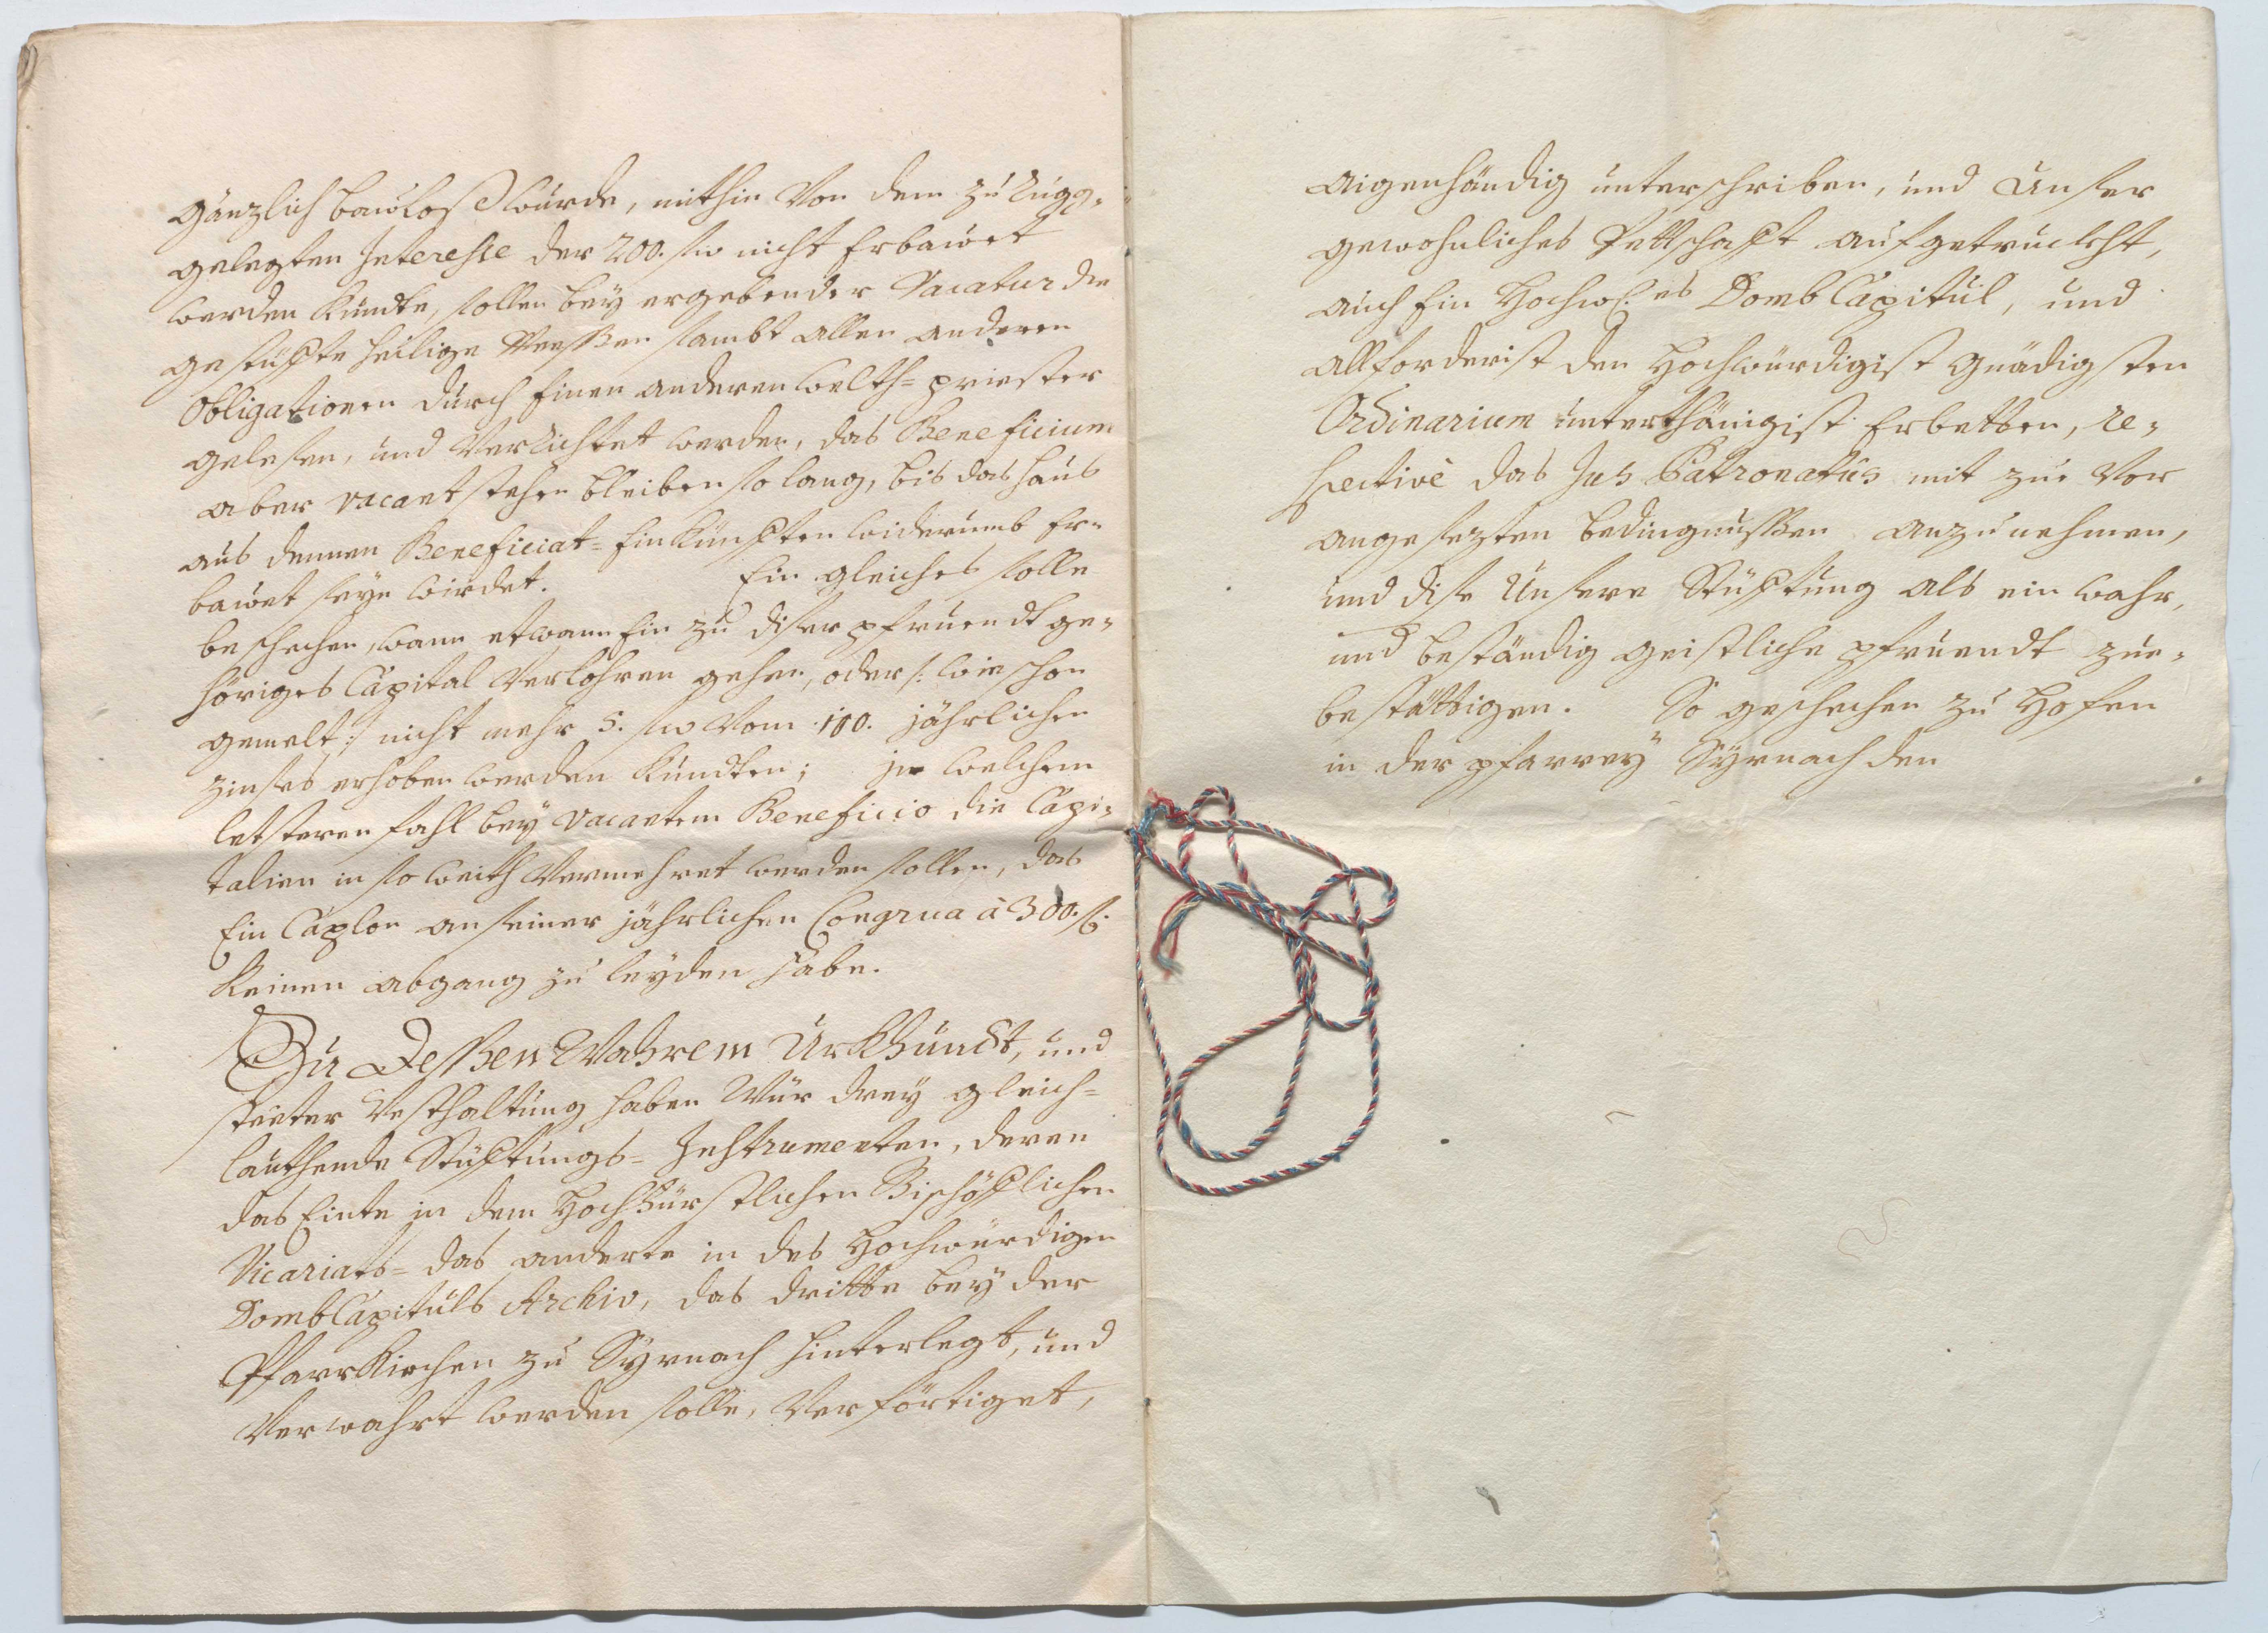 gänzlich bauloß wurde, mithin von dem zu rugg-
gelegten Interesse der 200. fl nicht erbauet
werden kundte, sollen bey ergebender Vacatur die
gestüffte heilige Messen sambt allen anderen
Obligationen durch einen anderen welth= priester
gelesen, und verrichtet werden, das Beneficium
aber vacant stehen bleiben so lang, bis das haus
aus dennen Beneficiat= einkünfften widerumb er-
bauet seyn wirdet. Ein gleiches solle
beschechen, wann etwann ein zu diser pfruendt ge-
höriges Capital verlohren gehen, oder /: wie schon
gemelt :/ nicht mehr 5. fl vom 100. jährlichen
zinses erhoben werden kundten; in welchem
letsteren fahl bey vacantem Beneficio die Capi-
talien in so weith vermehret werden sollen, das
Ein Caplon an seiner jährlichen Congrua à 300. fl.
keinen abgang zu leyden habe.
Zu Dessen Wahrem Urkhundt, und
steeter Vesthaltung haben Wür drey gleich=
lauthende Stüfftungs= Instrumenten, deren
das Einte in dem Hochfürstlichen Bischöfflichen
Vicariats= das anderte in des Hochwürdigen
DombCapituls Archiv, das dritte bey der
Pfarrkirchen zu Syrnach hinterlegt, und
verwahrt werden solle, verförtiget,
aigenhändig unterschriben, und Unser
gewohnliches Pettschafft aufgetruckht,
auch Ein Hochw. es Domb Capitul, und
allforderist den Hochwürdigist Gnädigsten
Ordinarium unterthänigist erbetten, re-
spective das Jus Patronatus mit zue vor
angesezten bedingnussen anzunehmen,
und dise Unsere Stüfftung als ein wahr,
und beständig geistliche pfruendt zue-
bestättigen. So geschechen zu Hofen
in der pfarrey Syrnach den